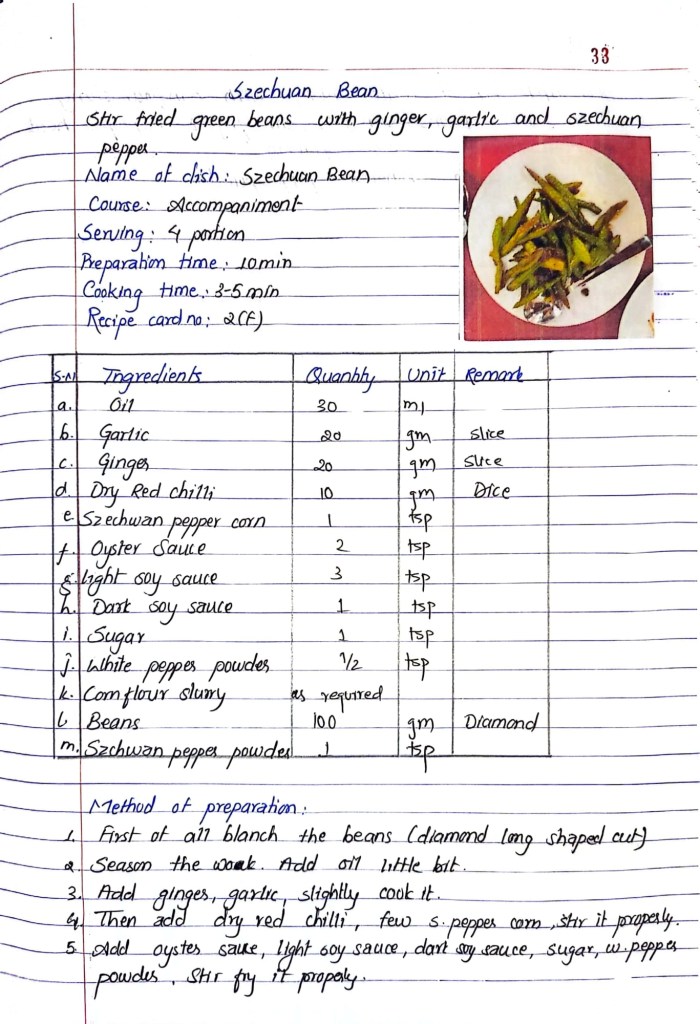 33
Szechuan Bean
Stir fried green beans with ginger, garlic and szechuan
pepper.
Name of dish: Szechuan Bean
Course: Accompaniment
Serving: 4 portion
Preparation time: 10min
Cooking time: 3-5 min
Recipe card no: 2(F)
S.N Ingredients Quantity Unit Remark
a. Oil 30 ml
b. Garlic 20 gm slice
c. Ginger 20 gm slice
d. Dry Red chilli 10 gm Dice
e. Szechwan pepper corn 1 tsp
f. Oyster Sauce 2 tsp
g. light soy sauce 3 tsp
h. Dark soy sauce 1 tsp
i. Sugar 1 tsp
j. White pepper powder 1/2 tsp
k. Cornflour slurry as required
l. Beans 100 gm Diamond
m. Szchwan pepper powder 1 tsp
Method of preparation:
1. First of all blanch the beans (diamond long shaped cut)
2. Season the wook. Add oil little bit.
3. Add ginger, garlic, slightly cook it.
4. Then add dry red chilli, few s. pepper corn, stir it properly.
5. Add oyster sauce, light soy sauce, dark soy sauce, sugar, w. pepper
powder. Stir fry it properly.